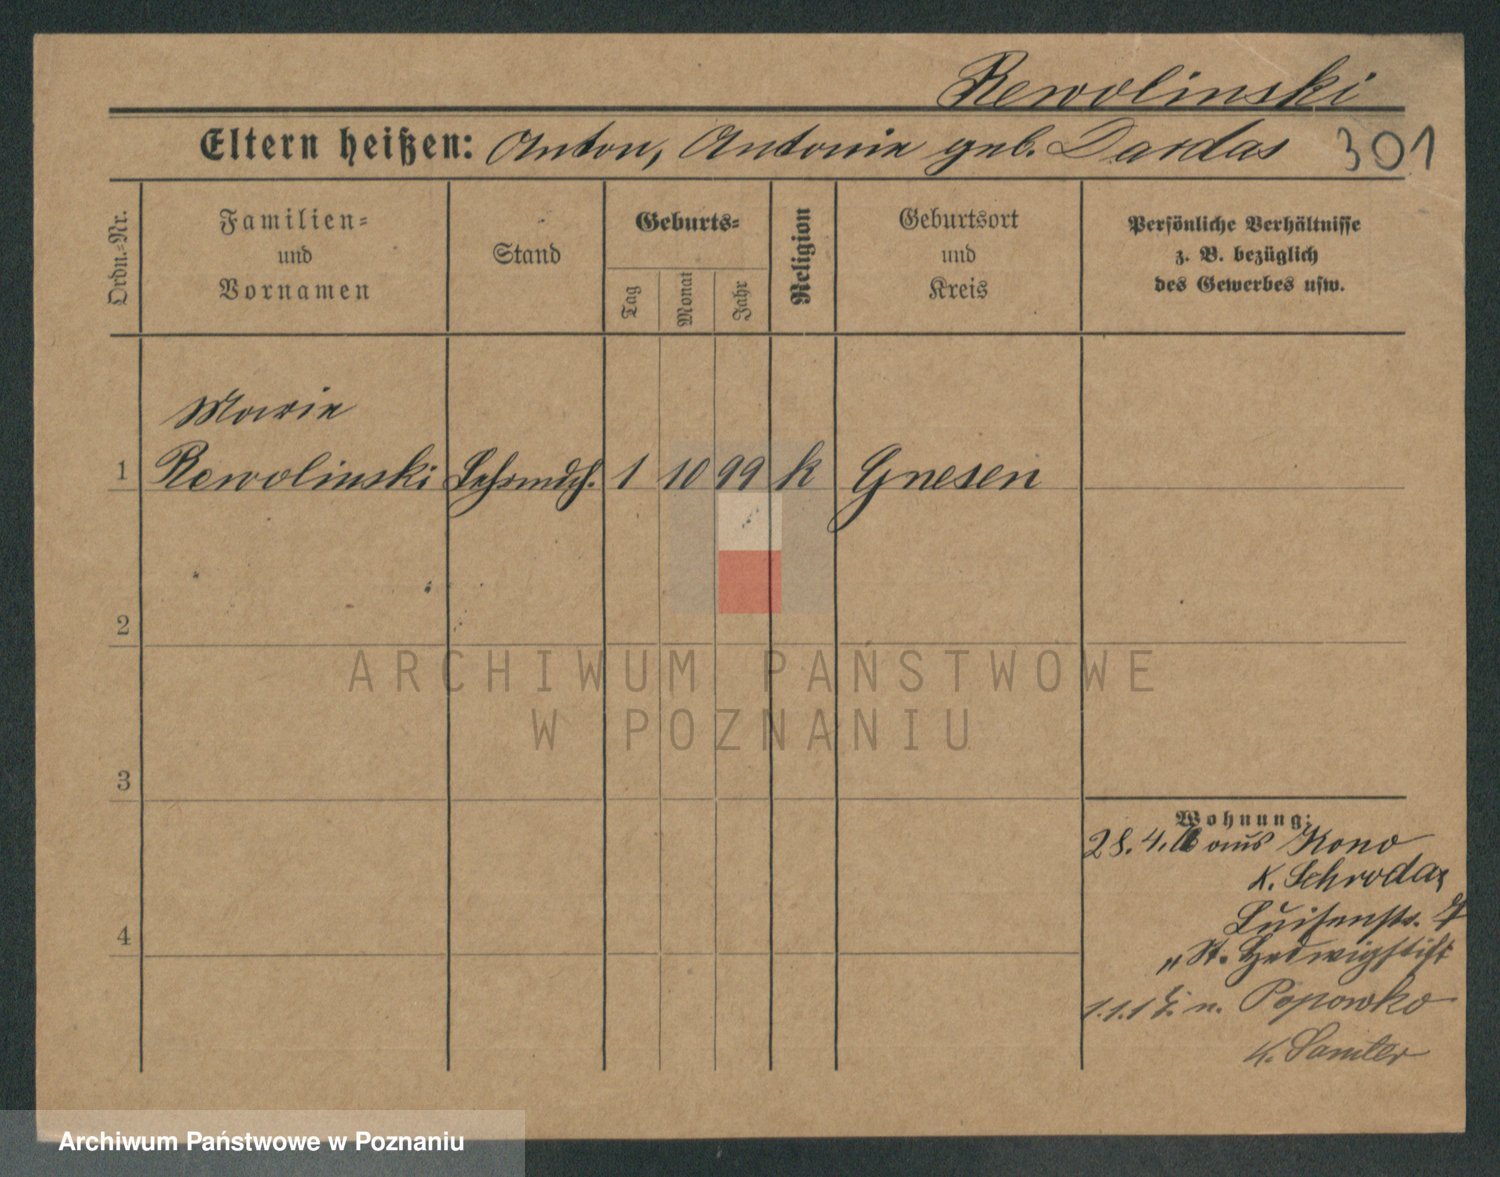 Rewolinski
Eltern heißen: Anton, Antonie geb. Dardas 301
Ordn.-Nr.
Familien-
und
Vornamen
Stand
Geburts-
Tag
Monat
Jahr
Religion
Geburtsort
und
Kreis
Persönliche Verhältnisse
z. B. bezüglich
des Gewerbes usw.
Marie
1 Rewolinski Lehrmdch. 1 10 99 k Gnesen
2
3
4
Wohnung:
28.4. aus Kono
K. Schroda
Luisenstr.
St. Hedwigstift
1.1.1 n. Popowko
K. Samter
ARCHIWUM PAŃSTWOWE
W POZNANIU
Archiwum Państwowe w Poznaniu